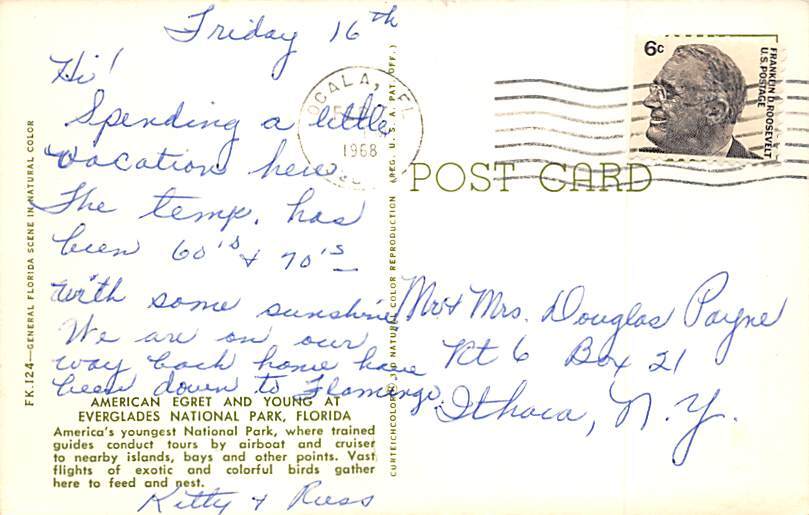 Friday 16th
Hi!
Spending a little
vacation here
The temp. has
been 60's & 70's
with some sunshine.
We are on our
way back home have
been down to Flamingo.
AMERICAN EGRET AND YOUNG AT
EVERGLADES NATIONAL PARK, FLORIDA
America's youngest National Park, where trained
guides conduct tours by airboat and cruiser
to nearby islands, bays and other points. Vast
flights of exotic and colorful birds gather
here to feed and nest.
Kitty & Russ
FK.124—GENERAL FLORIDA SCENE IN NATURAL COLOR
CURTEICHCOLOR 3-D NATURAL COLOR REPRODUCTION (REG. U.S.A. PAT. OFF.)
OCALA, FL
1968
6c
FRANKLIN D. ROOSEVELT
U.S. POSTAGE
POST CARD
Mr & Mrs. Douglas Payne
Rt 6 Box 21
Ithaca, N.Y.